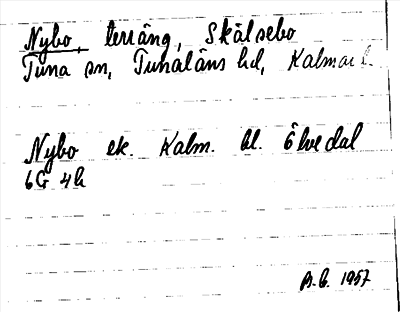 Nybo, terräng, Skälsebo
Tuna sn, Tunaläns hd, Kalmar l.
Nybo ek. Kalm. bl. Ölvedal
6G 4h
B.G. 1957